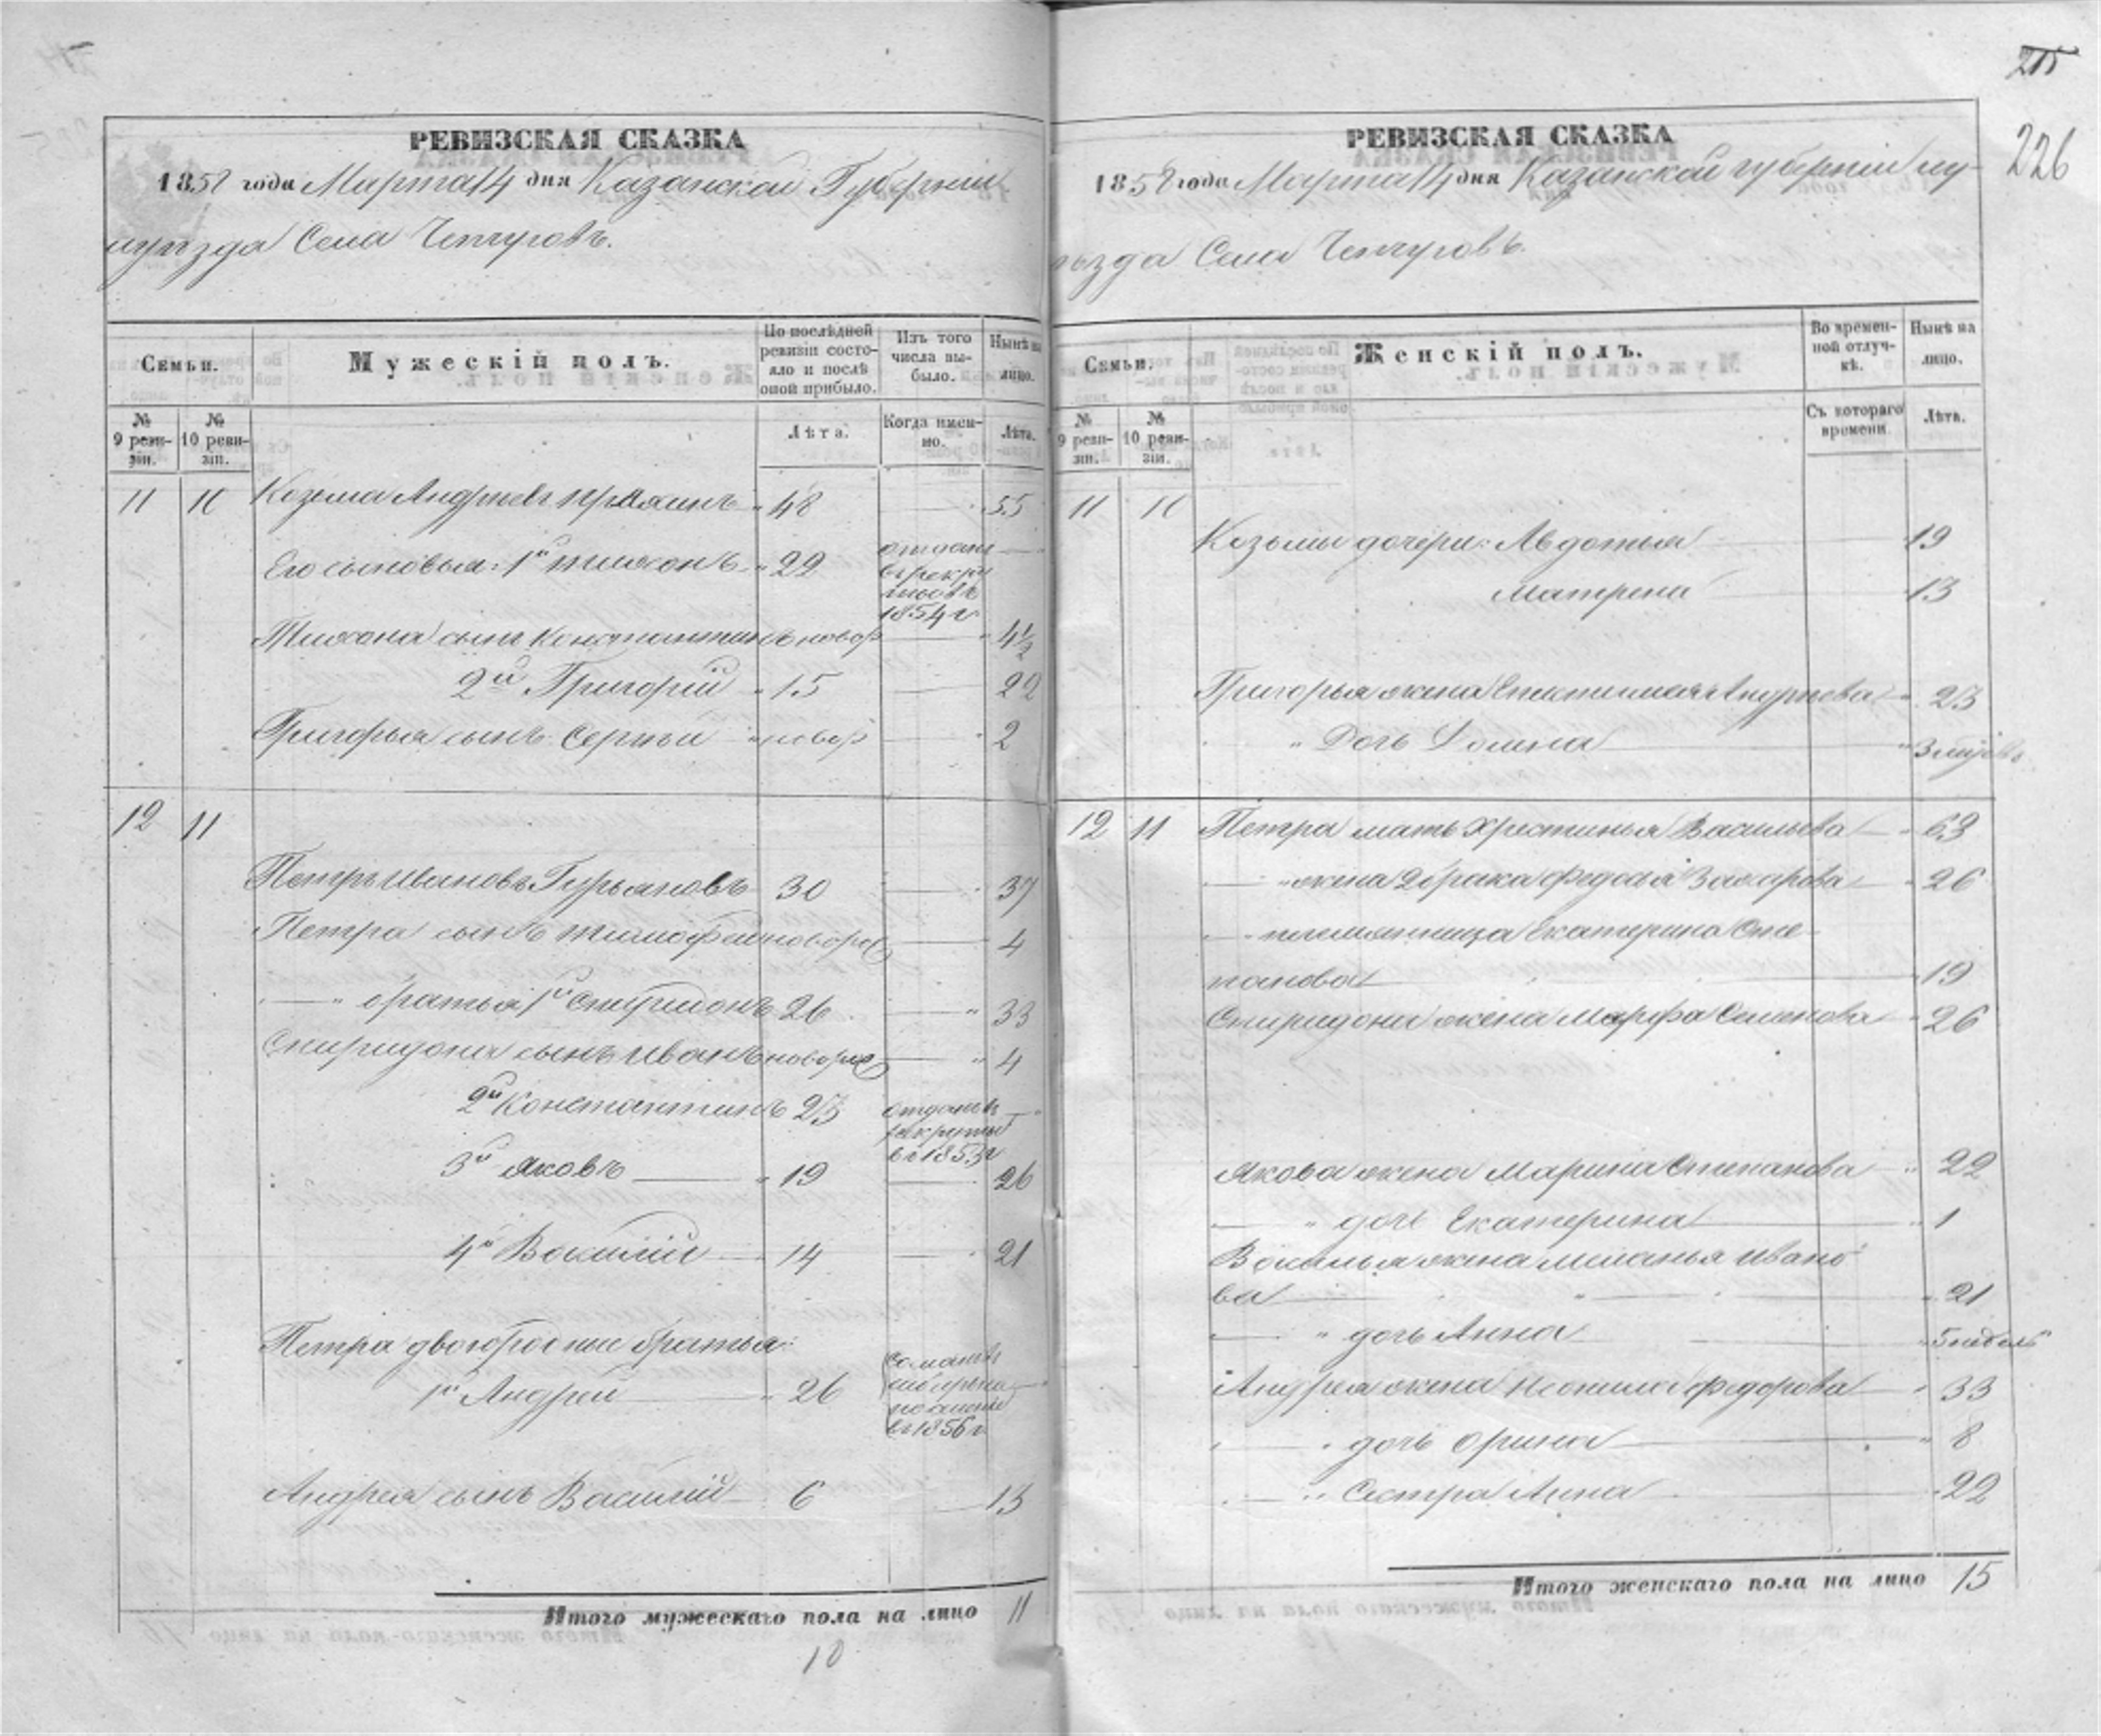 215
226
РЕВИЗСКАЯ СКАЗКА
1858 года Марта 14 дня Казанской Губерніи
уѣзда Села Чепчуговъ.
Семьи.
Мужескій полъ.
По послѣдней ревизіи состояло и послѣ оной прибыло.
Изъ того числа выбыло.
Нынѣ на лицо.
№ 9 ревизіи.
№ 10 ревизіи.
Лѣта.
Когда именно.
Лѣта.
11 10 Козьма Андреевъ 48 55
Его сыновья: 1й Тихонъ 22 отданъ въ рекруты въ 1854 г.
Тихона сынъ Константинъ новор 4½
2й Григорій 15 22
Григорья сынъ Сергѣй новор 2
12 11
Петръ Ивановъ Гурьяновъ 30 37
Петра сынъ Тимофей новорож 4
" братья 1й Спиридонъ 26 33
Спиридона сынъ Иванъ новорож 4
2й Константинъ 23 отданъ в рекруты въ 1853 г
3й Яковъ 19 26
4й Василій 14 21
Петра двоюродные братья:
1й Андрей 26 въ 1856 г.
Андрея сынъ Василій 6 13
Итого мужескаго пола на лицо 11
10
РЕВИЗСКАЯ СКАЗКА
1858 года Марта 14 дня Казанской губерніи
уѣзда Села Чепчуговъ.
Семьи.
Женскій полъ.
Во временной отлучкѣ.
Нынѣ на лицо.
№ 9 ревизіи.
№ 10 ревизіи.
Съ котораго времени.
Лѣта.
11 10
Козьмы дочери: Авдотья 19
Матрена 13
Григорья жена Андреева 23
" Дочь Домна 3 мѣсяц
12 11 Петра мать Христинья Васильева 63
" жена 2 брака Федосья Захарова 26
племянница Екатерина Сте-
панова 19
Спиридона жена Марфа Семенова 26
Якова жена Марина Степанова 22
" дочь Екатерина 1
Василья жена Меланья Ивано-
ва 21
" дочь Анна 5 недель
Андрея жена Неонила Федорова 33
" дочь Орина 8
" Сестра Анна 22
Итого женскаго пола на лицо 15